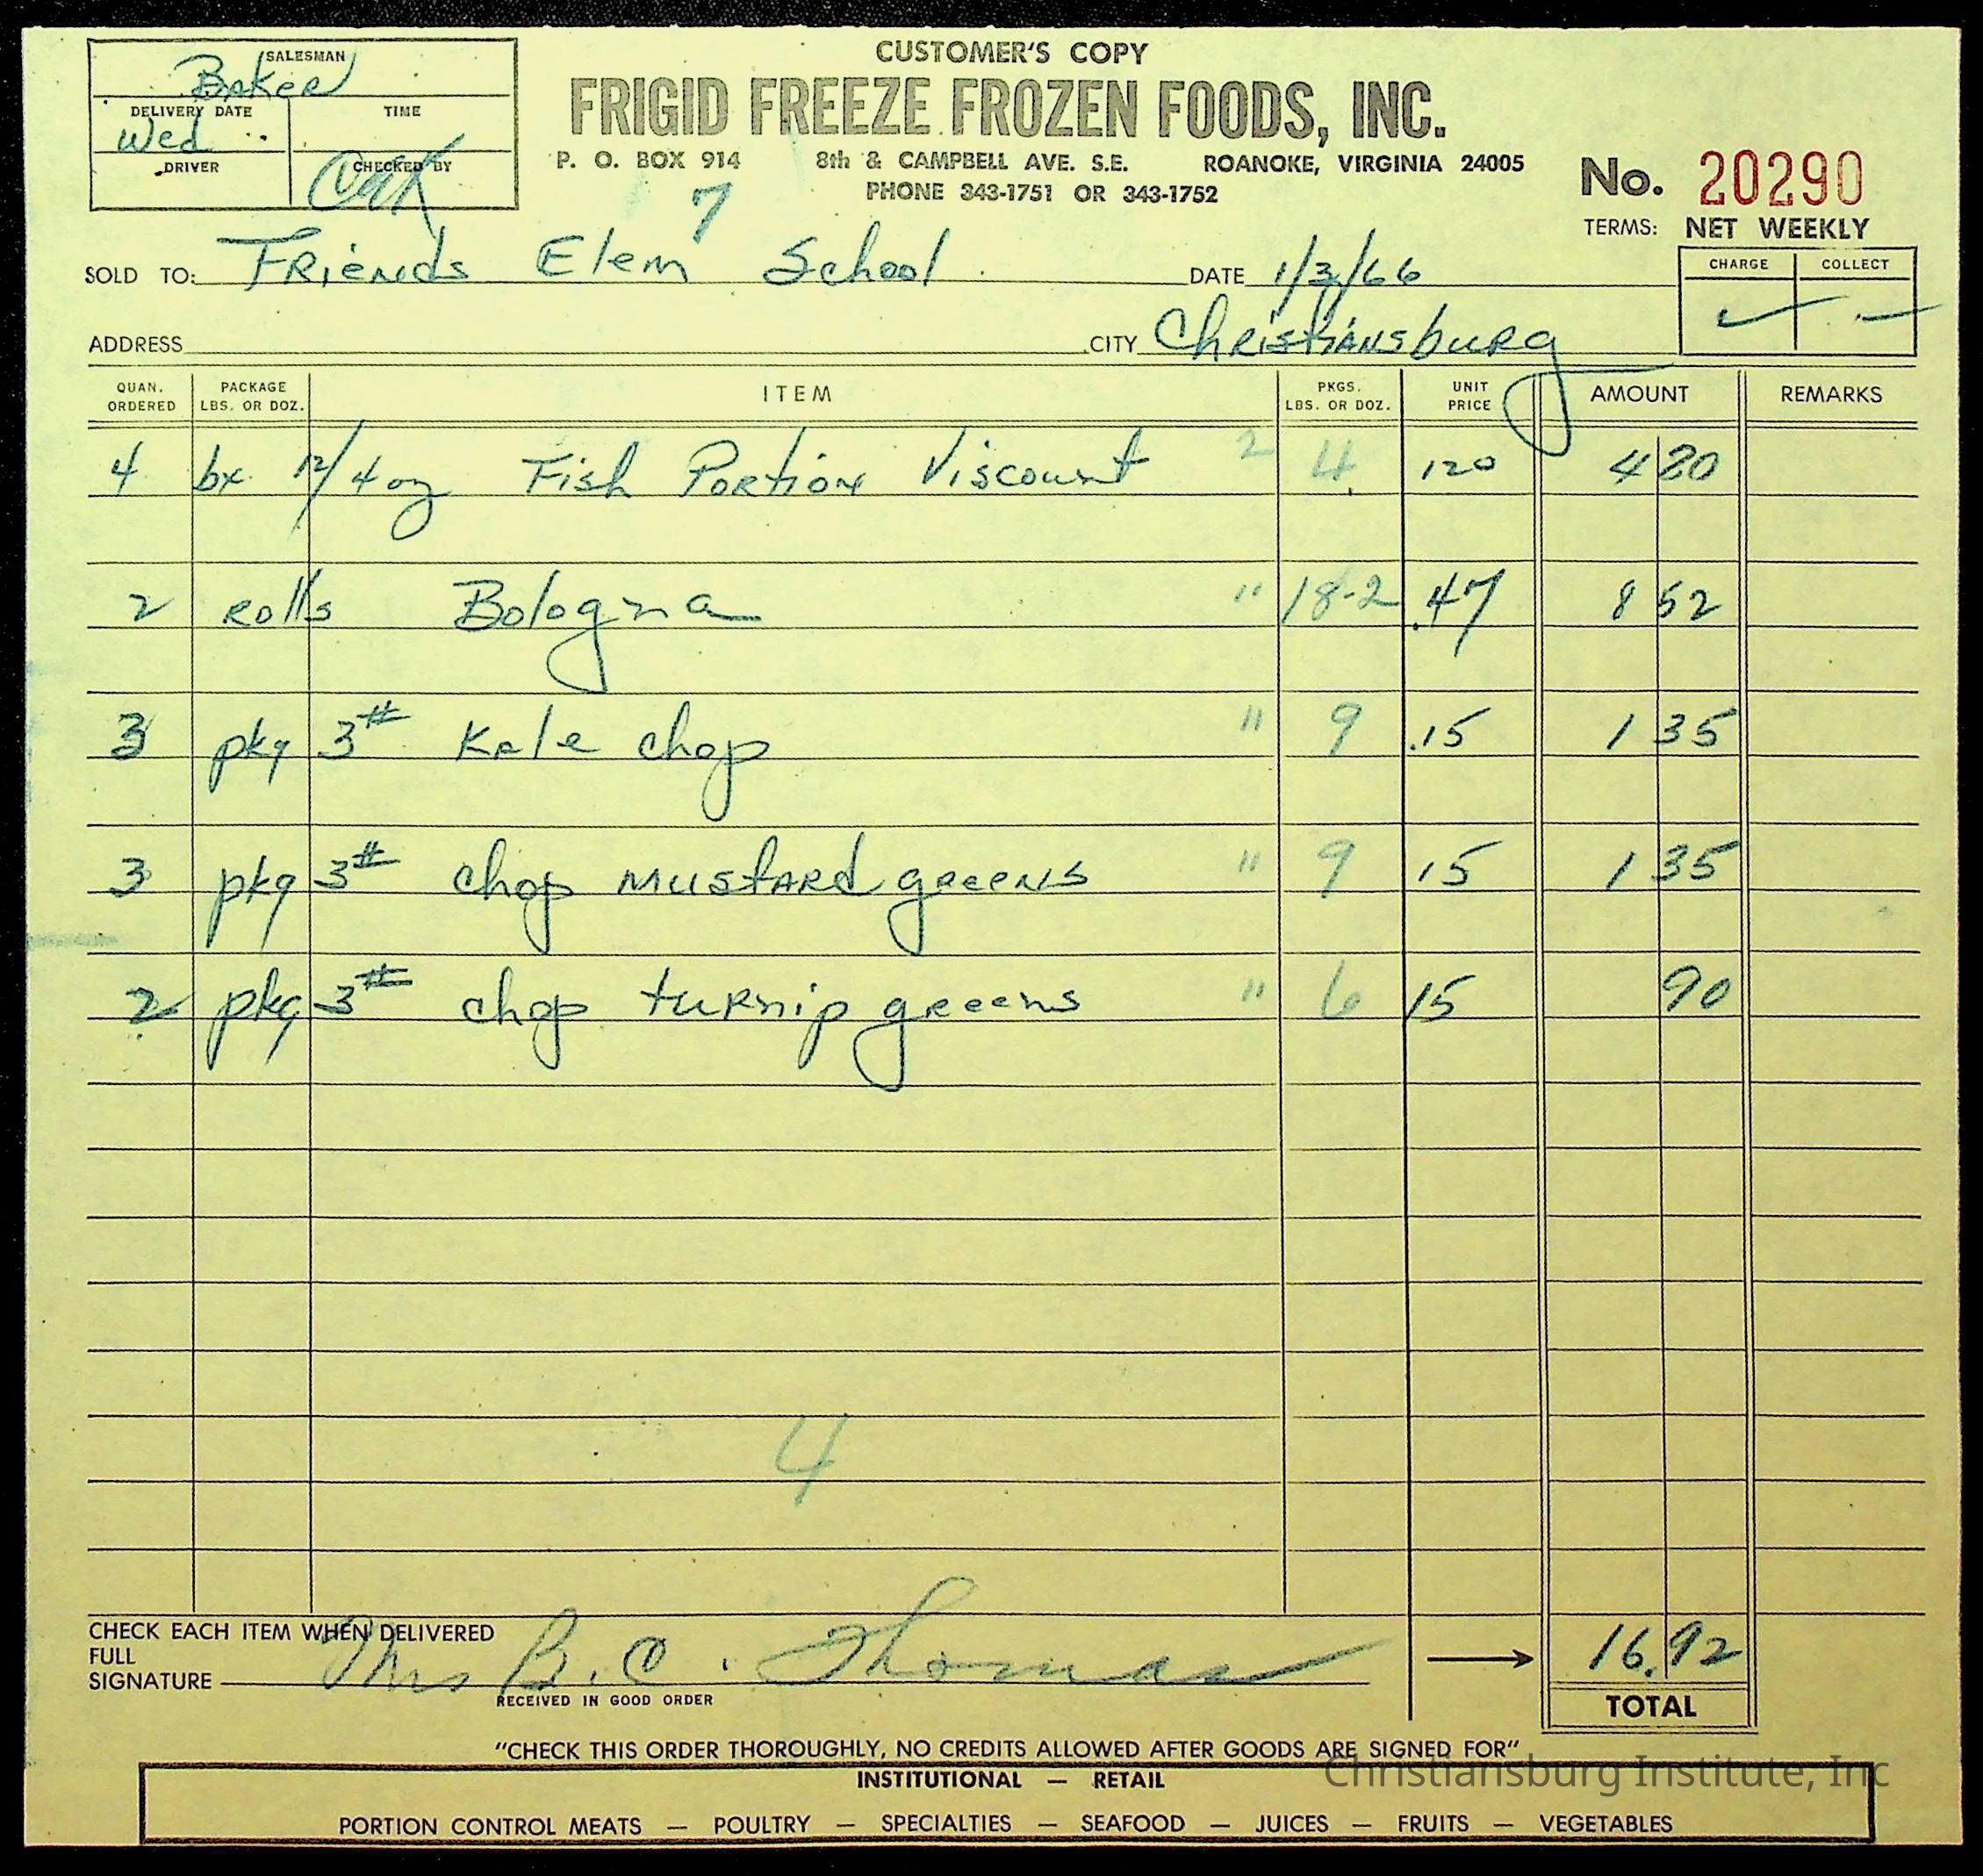 SALESMAN
Baker
DELIVERY DATE TIME
Wed
DRIVER CHECKED BY
CUSTOMER'S COPY
FRIGID FREEZE FROZEN FOODS, INC.
P. O. BOX 914 8th & CAMPBELL AVE. S.E. ROANOKE, VIRGINIA 24005
PHONE 343-1751 OR 343-1752
7
No. 20290
TERMS: NET WEEKLY
CHARGE COLLECT
SOLD TO: Friends Elem School DATE 1/3/66
ADDRESS CITY Christiansburg
QUAN. ORDERED PACKAGE LBS. OR DOZ. ITEM PKGS. LBS. OR DOZ. UNIT PRICE AMOUNT REMARKS
4 bx 12/4 oz Fish Portion Viscount 2 4 120 4 80
2 rolls Bologna " 18-2 .47 8 52
3 pkg 3# Kale chop " 9 .15 1 35
3 pkg 3# chop mustard greens " 9 15 1 35
2 pkg 3# chop turnip greens " 6 15 90
4
CHECK EACH ITEM WHEN DELIVERED
FULL
SIGNATURE Mrs B. C. Thomas
RECEIVED IN GOOD ORDER
16.92
TOTAL
"CHECK THIS ORDER THOROUGHLY, NO CREDITS ALLOWED AFTER GOODS ARE SIGNED FOR"
Christiansburg Institute, Inc
INSTITUTIONAL — RETAIL
PORTION CONTROL MEATS — POULTRY — SPECIALTIES — SEAFOOD — JUICES — FRUITS — VEGETABLES